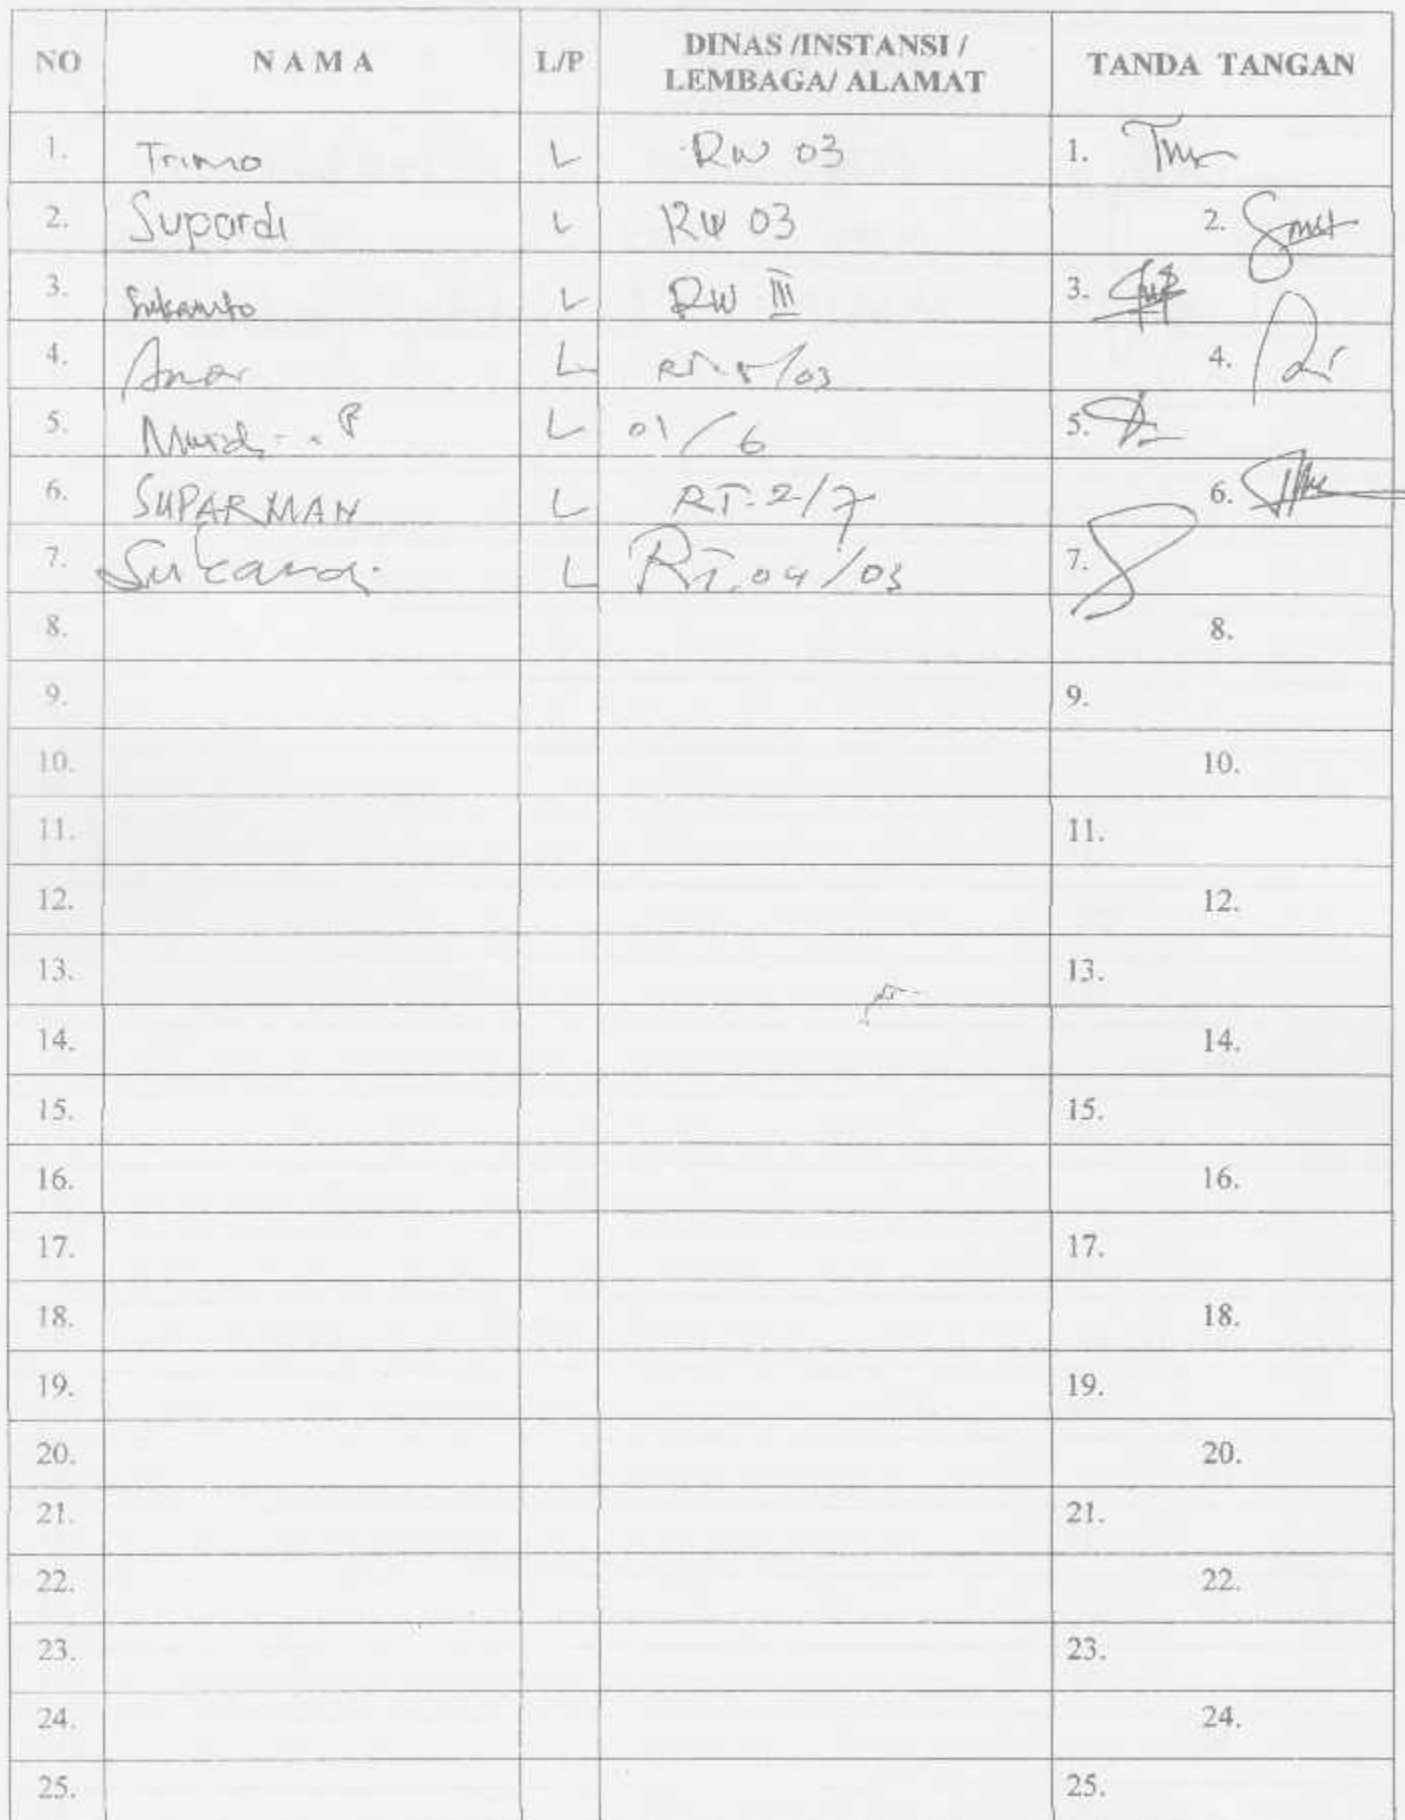 NO NAMA L/P DINAS /INSTANSI / LEMBAGA/ ALAMAT TANDA TANGAN
1. Trimo L RW 03 1.
2. Supardi L RW 03 2.
3. Sukamto L RW III 3.
4. L 4.
5. L 01/6 5.
6. SUPARMAN L RT. 2/7 6.
7. Sukandi L RT. 04/03 7.
8. 8.
9. 9.
10. 10.
11. 11.
12. 12.
13. 13.
14. 14.
15. 15.
16. 16.
17. 17.
18. 18.
19. 19.
20. 20.
21. 21.
22. 22.
23. 23.
24. 24.
25. 25.